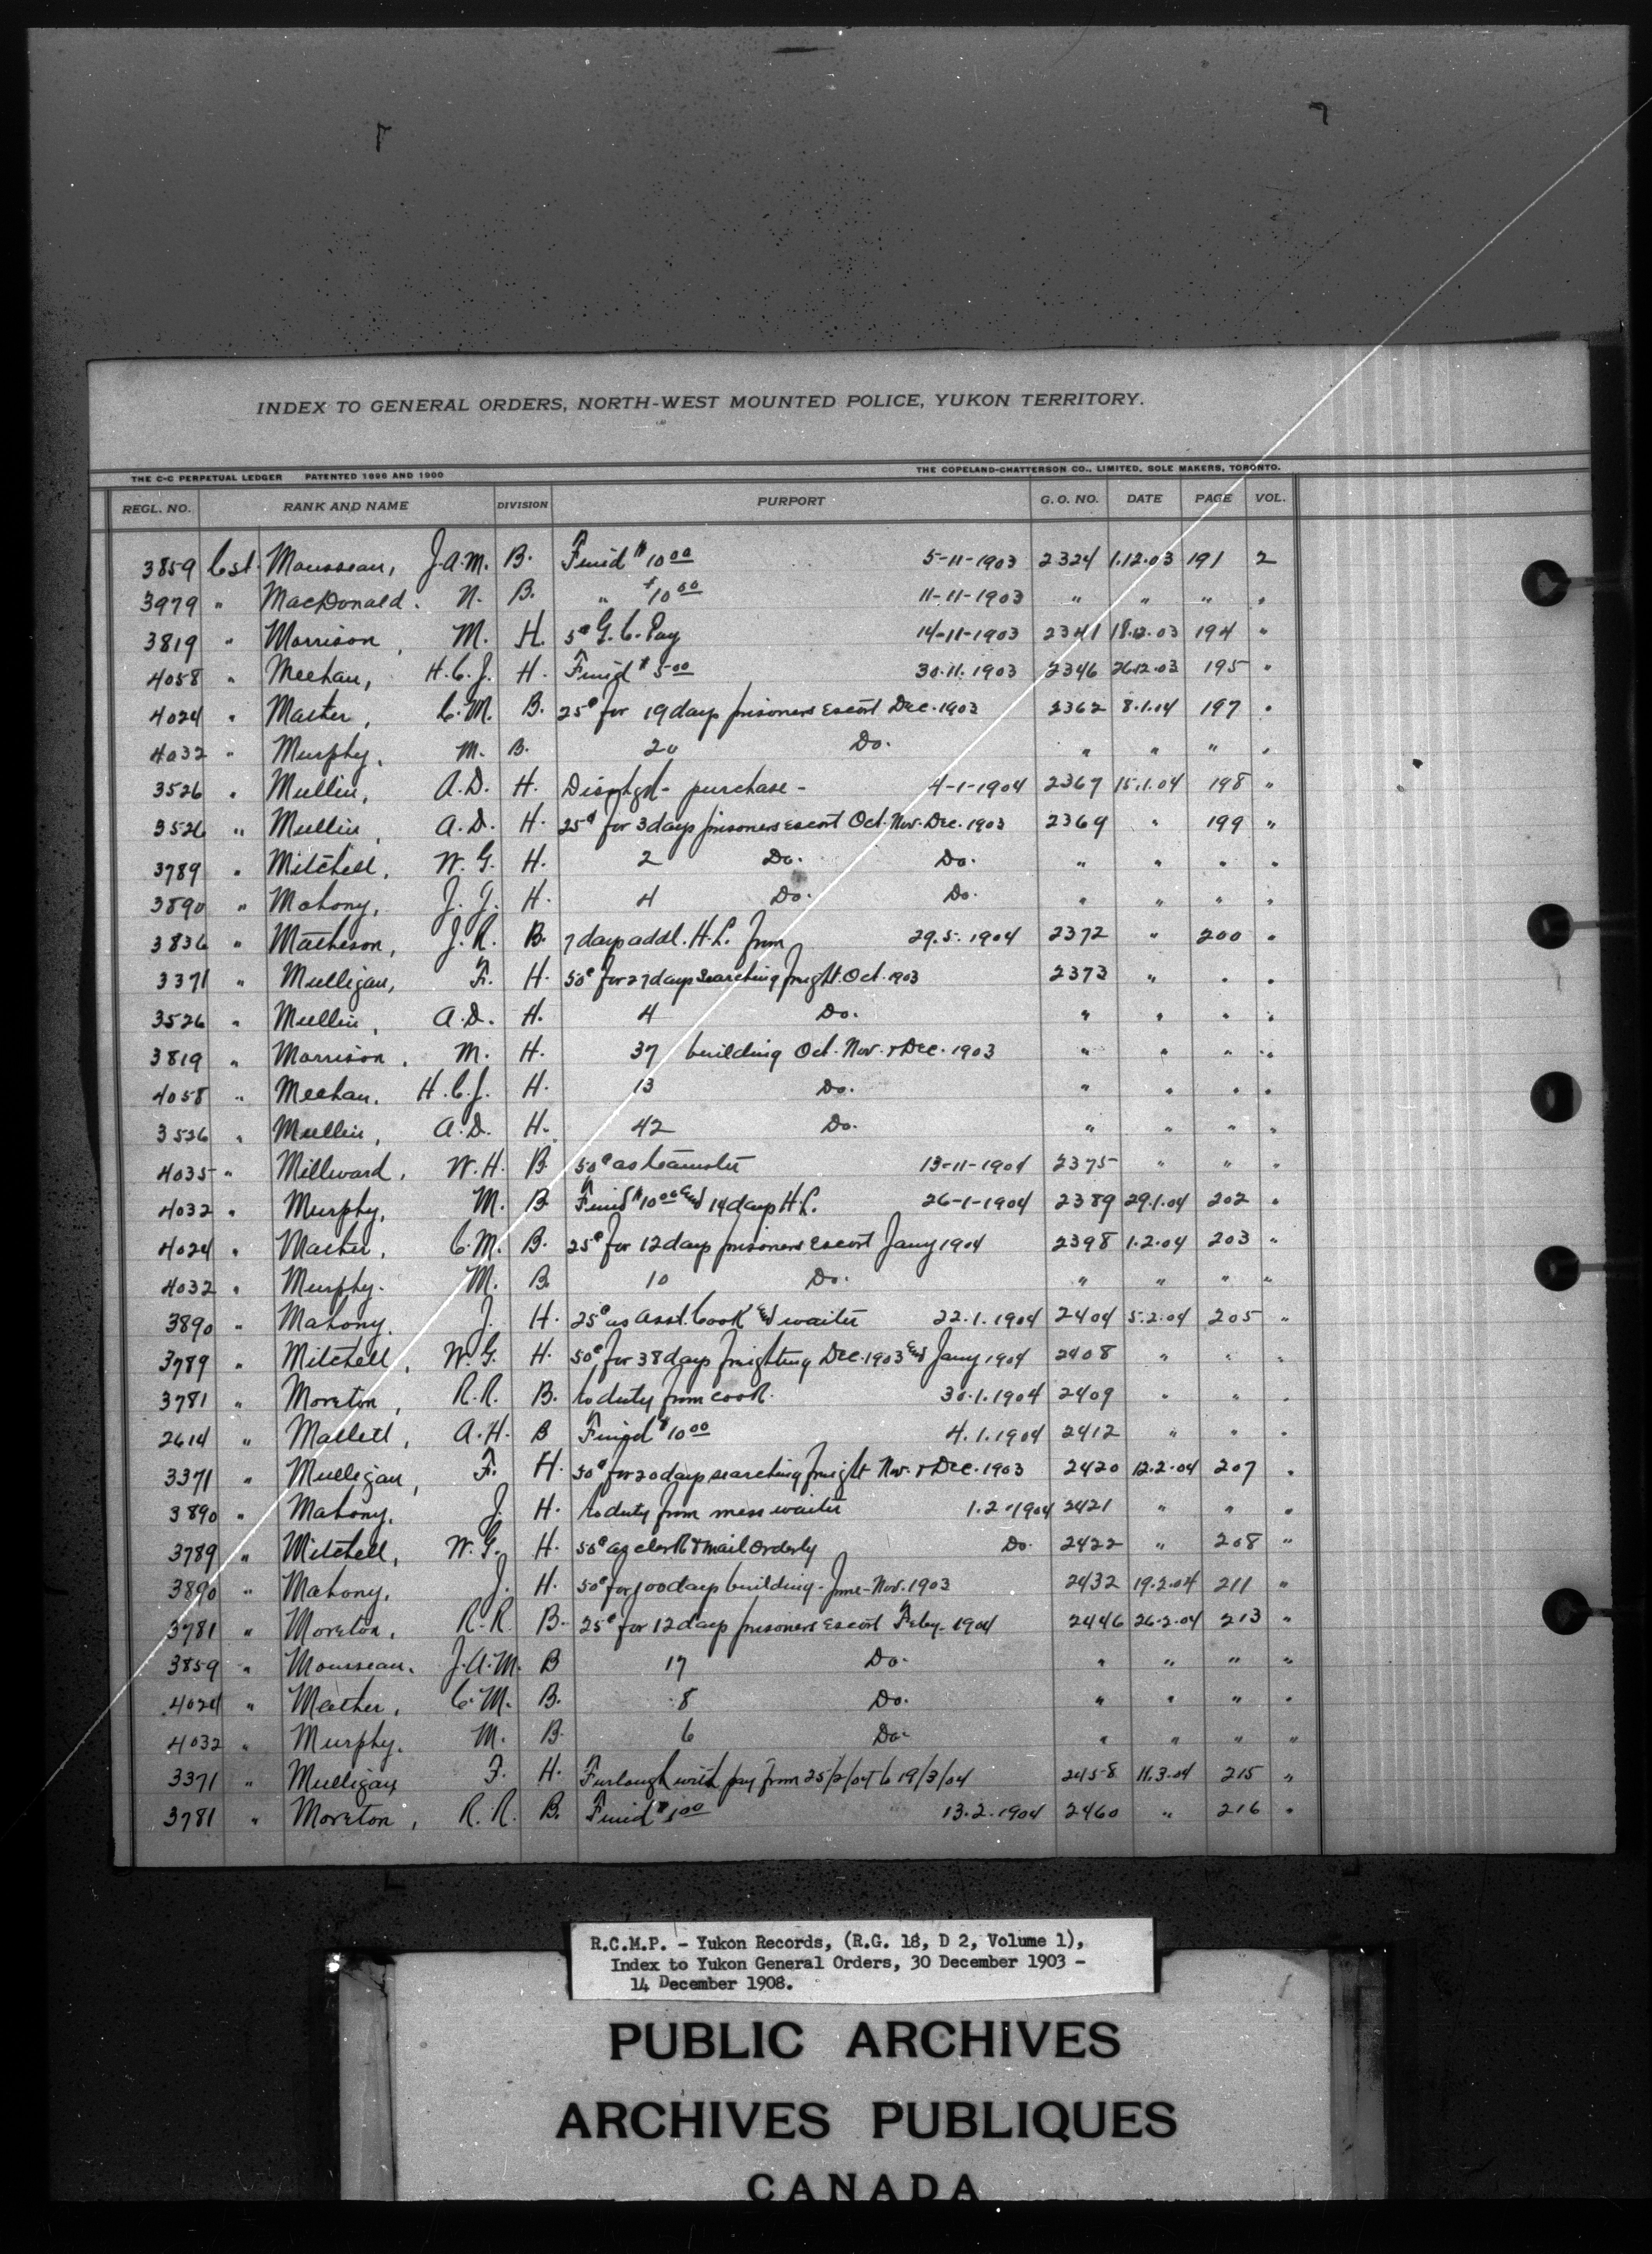 INDEX TO GENERAL ORDERS, NORTH-WEST MOUNTED POLICE, YUKON TERRITORY.
THE C-C PERPETUAL LEDGER PATENTED 1896 AND 1900 THE COPELAND-CHATTERSON CO., LIMITED, SOLE MAKERS, TORONTO.
REGL. NO. RANK AND NAME DIVISION PURPORT G. O. NO. DATE PAGE VOL.
3859 Cst. Mousseau, J.A.M. B. Fined $10 00 5-11-1903 2324 1.12.03 191 2
3979 " MacDonald. N. B. " $10 00 11-11-1903 " " " "
3819 " Morrison, M. H. 5¢ G.C. Pay 14-11-1903 2341 18.12.03 194 "
4058 " Meehan, H.C.J. H. Fined $5 00 30.11.1903 2346 26.12.03 195 "
4024 " Mather, C.M. B. 25¢ for 19 days prisoners escort Dec. 1903 2362 8.1.04 197 "
4032 " Murphy, M. B. 20 Do. " " " "
3526 " Mullin, A.D. H. Dischgd - purchase - 4-1-1904 2367 15.1.04 198 "
3526 " Mullin, A.D. H. 25¢ for 3 days prisoners escort Oct. Nov. Dec. 1903 2369 " 199 "
3789 " Mitchell, W.G. H. 2 Do. Do. " " " "
3890 " Mahony, J. J. H. 4 Do. Do. " " " "
3836 " Matheson, J.R. B. 7 days addl. H.L. from 29.5.1904 2372 " 200 "
3371 " Mulligan, F. H. 50¢ for 27 days searching freight Oct. 1903 2373 " " "
3526 " Mullin, A.D. H. 4 Do. " " " "
3819 " Morrison, M. H. 37 building Oct. Nov. & Dec. 1903 " " " "
4058 " Meehan. H.C.J. H. 13 Do. " " " "
3526 " Mullin, A.D. H. 42 Do. " " " "
4035 " Millward, W.H. B. 50¢ as teamster 13-11-1904 2375 " " "
4032 " Murphy, M. B. Fined $10 00 and 14 days H.L. 26-1-1904 2389 29.1.04 202 "
4024 " Mather, C.M. B. 25¢ for 12 days prisoners escort Jany 1904 2398 1.2.04 203 "
4032 " Murphy. M. B. 10 Do. " " " "
3890 " Mahony. J. H. 25¢ as asst. Cook and waiter 22.1.1904 2404 5.2.04 205 "
3789 " Mitchell, W.G. H. 50¢ for 38 days freighting Dec. 1903 and Jany 1904 2408 " " "
3781 " Moreton, R.R. B. to duty from cook. 30.1.1904 2409 " " "
2614 " Mallett, A.H. B Fined $10 00 4.1.1904 2412 " " "
3371 " Mulligan, F. H. 50¢ for 20 days searching freight Nov. & Dec. 1903 2420 12.2.04 207 "
3890 " Mahony, J. H. to duty from mess waiter 1.2.1904 2421 " " "
3789 " Mitchell, W.G. H. 50¢ as clerk & mail orderly Do. 2422 " 208 "
3890 " Mahony, J. H. 50¢ for 100 days building - June - Nov. 1903 2432 19.2.04 211 "
3781 " Moreton, R.R. B. 25¢ for 12 days prisoners escort Feby. 1904 2446 26.2.04 213 "
3859 " Mousseau. J.A.M. B 17 Do. " " " "
4024 " Mather, C.M. B. 8 Do. " " " "
4032 " Murphy. M. B. 6 Do. " " " "
3371 " Mulligan F. H. Furlough with pay from 25/2/04 to 19/3/04 2458 11.3.04 215 "
3781 " Moreton, R.R. B. Fined $ 00 13.2.1904 2460 " 216 "
R.C.M.P. - Yukon Records, (R.G. 18, D 2, Volume 1),
Index to Yukon General Orders, 30 December 1903 -
14 December 1908.
PUBLIC ARCHIVES
ARCHIVES PUBLIQUES
CANADA